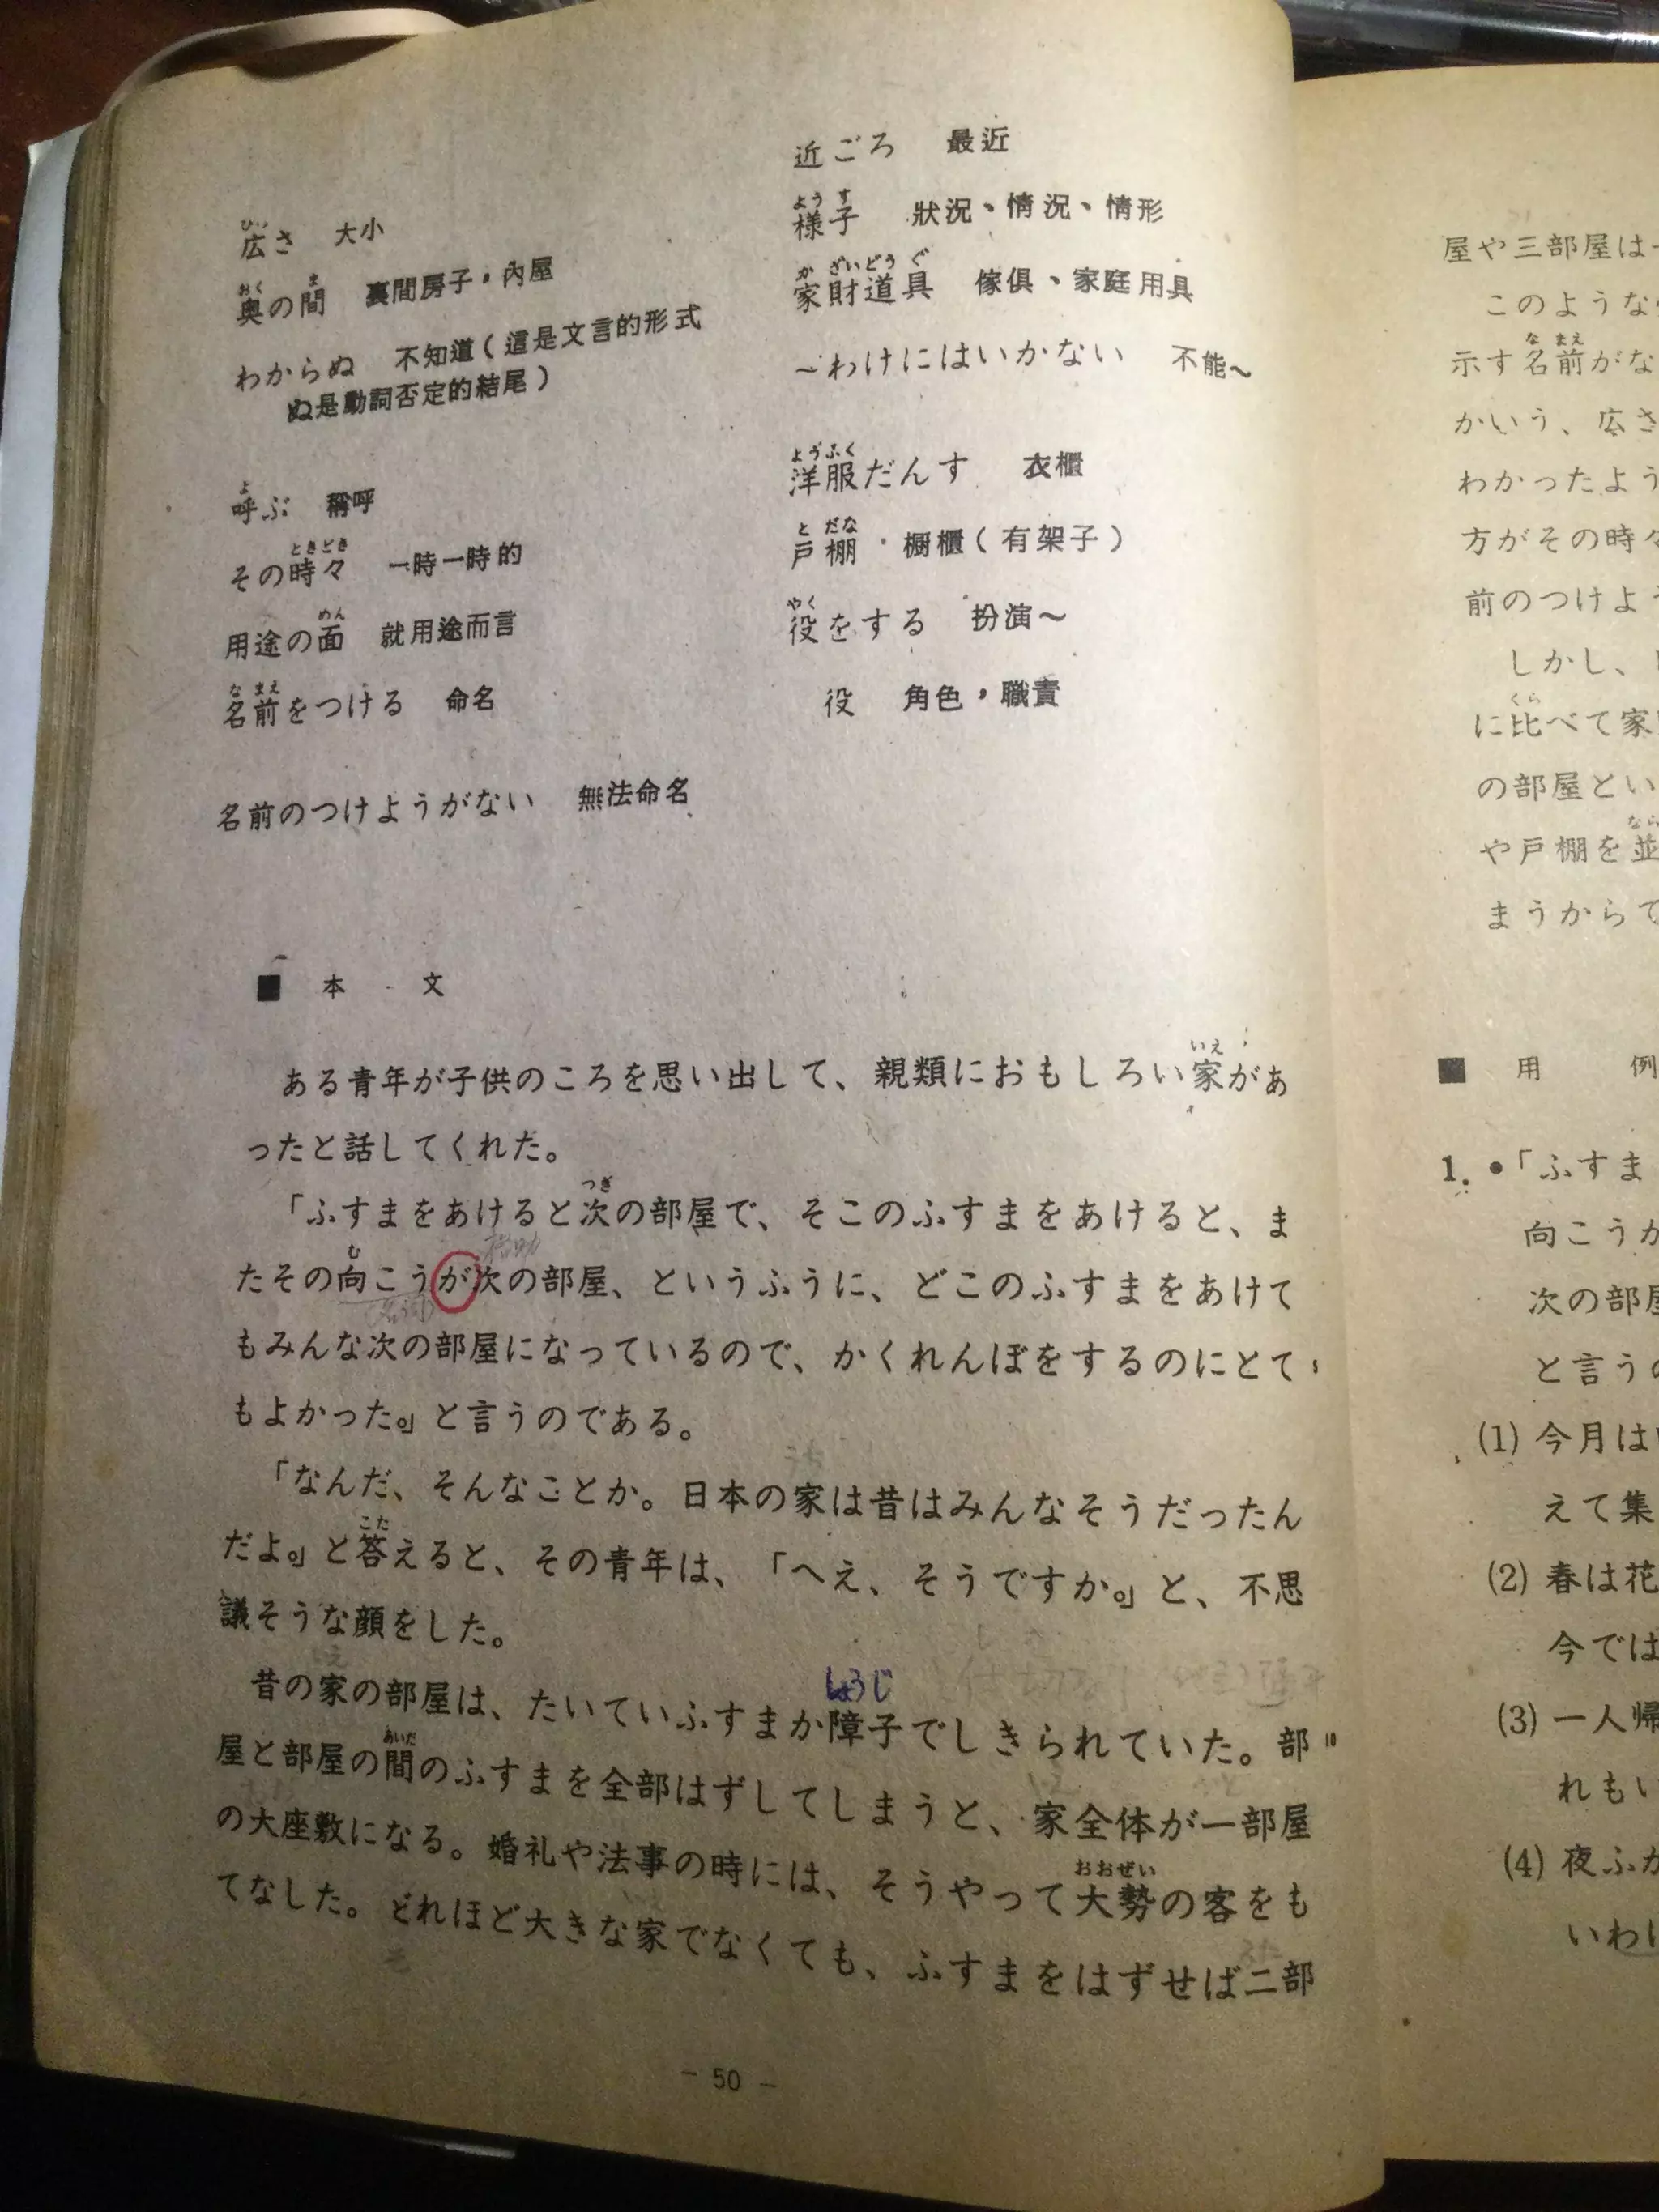 広さ　大小
奥の間　裏間房子，內屋
わからぬ　不知道（這是文言的形式
ぬ是動詞否定的結尾）
呼ぶ　稱呼
その時々　一時一時的
用途の面　就用途而言
名前をつける　命名
名前のつけようがない　無法命名
近ごろ　最近
様子　狀況、情況、情形
家財道具　傢俱、家庭用具
～わけにはいかない　不能～
洋服だんす　衣櫃
戸棚　橱櫃（有架子）
役をする　扮演～
役　角色，職責
■　本　文
ある青年が子供のころを思い出して、親類におもしろい家があ
ったと話してくれた。
「ふすまをあけると次の部屋で、そこのふすまをあけると、ま
たその向こうが次の部屋、というふうに、どこのふすまをあけて
もみんな次の部屋になっているので、かくれんぼをするのにとて
もよかった。」と言うのである。
「なんだ、そんなことか。日本の家は昔はみんなそうだったん
だよ。」と答えると、その青年は、「へえ、そうですか。」と、不思
議そうな顔をした。
しょうじ
昔の家の部屋は、たいていふすまか障子でしきられていた。部
屋と部屋の間のふすまを全部はずしてしまうと、家全体が一部屋
の大座敷になる。婚礼や法事の時には、そうやって大勢の客をも
てなした。どれほど大きな家でなくても、ふすまをはずせば二部
－ 50 －
屋や三部屋は
このような
示す名前がな
かいう、広さ
わかったよう
方がその時々
前のつけよ
しかし、
に比べて家
の部屋とい
や戸棚を並
まうからで
■　用　例
1. ●「ふすま
向こうが
次の部屋
と言うの
(1) 今月は
えて集
(2) 春は花
今では
(3) 一人帰
れもい
(4) 夜ふか
いわけ